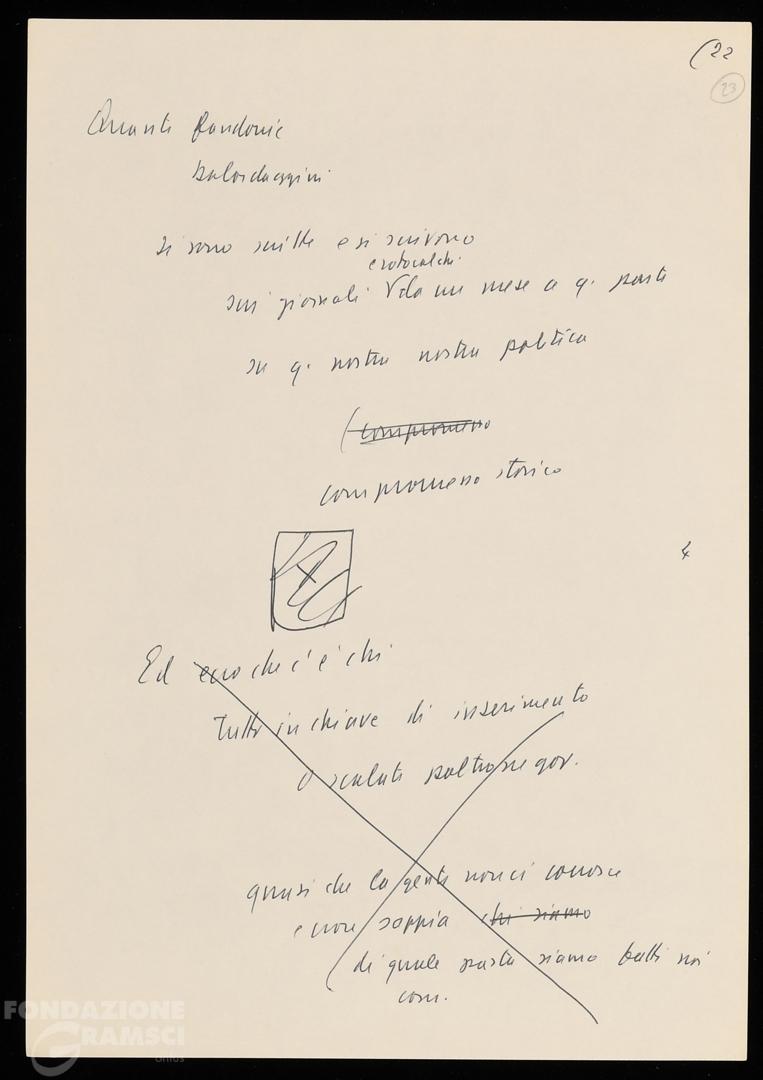 (22
23
Quante fandonie
balordaggini
si sono scritte e si scrivono
e rotocalchi
sui giornali V da un mese a q. parte
su q. nostra nostra politica
(compromesso
compromesso storico
4
Ed ecco che c'è chi
Tutto in chiave di inserimento
o scalate poltrone gov.
quasi che la gente non ci conosce
e non sappia chi siamo
di quale pasta siamo fatti noi
com.
FONDAZIONE
GRAMSCI
onlus